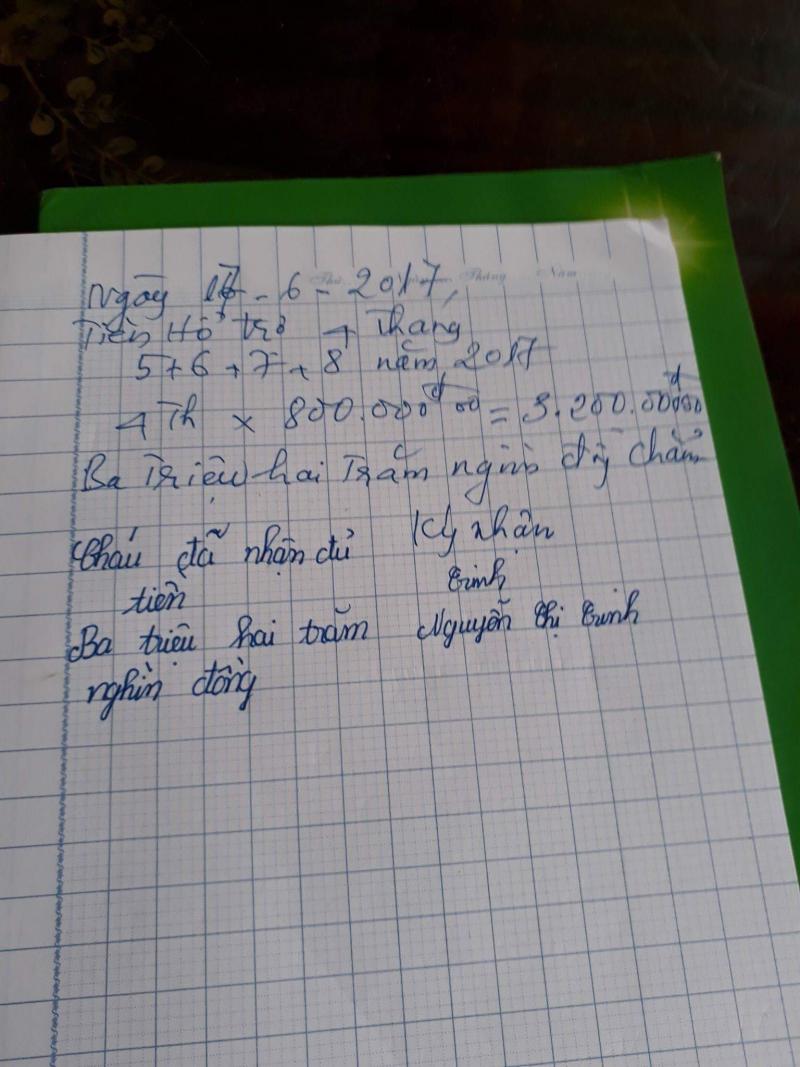 Thứ Tháng Năm
Ngày 17 - 6 - 2017,
Tiền Hỗ trợ 4 Tháng
5 + 6 + 7 + 8 năm 2017
4 Th × 800.000đ00 = 3.200.000đ00
Ba Triệu hai Trăm nghìn đồng chẵn
Cháu đã nhận đủ
tiền
Ba triệu hai trăm
nghìn đồng
Ký nhận
Trinh
Nguyễn Thị Trinh